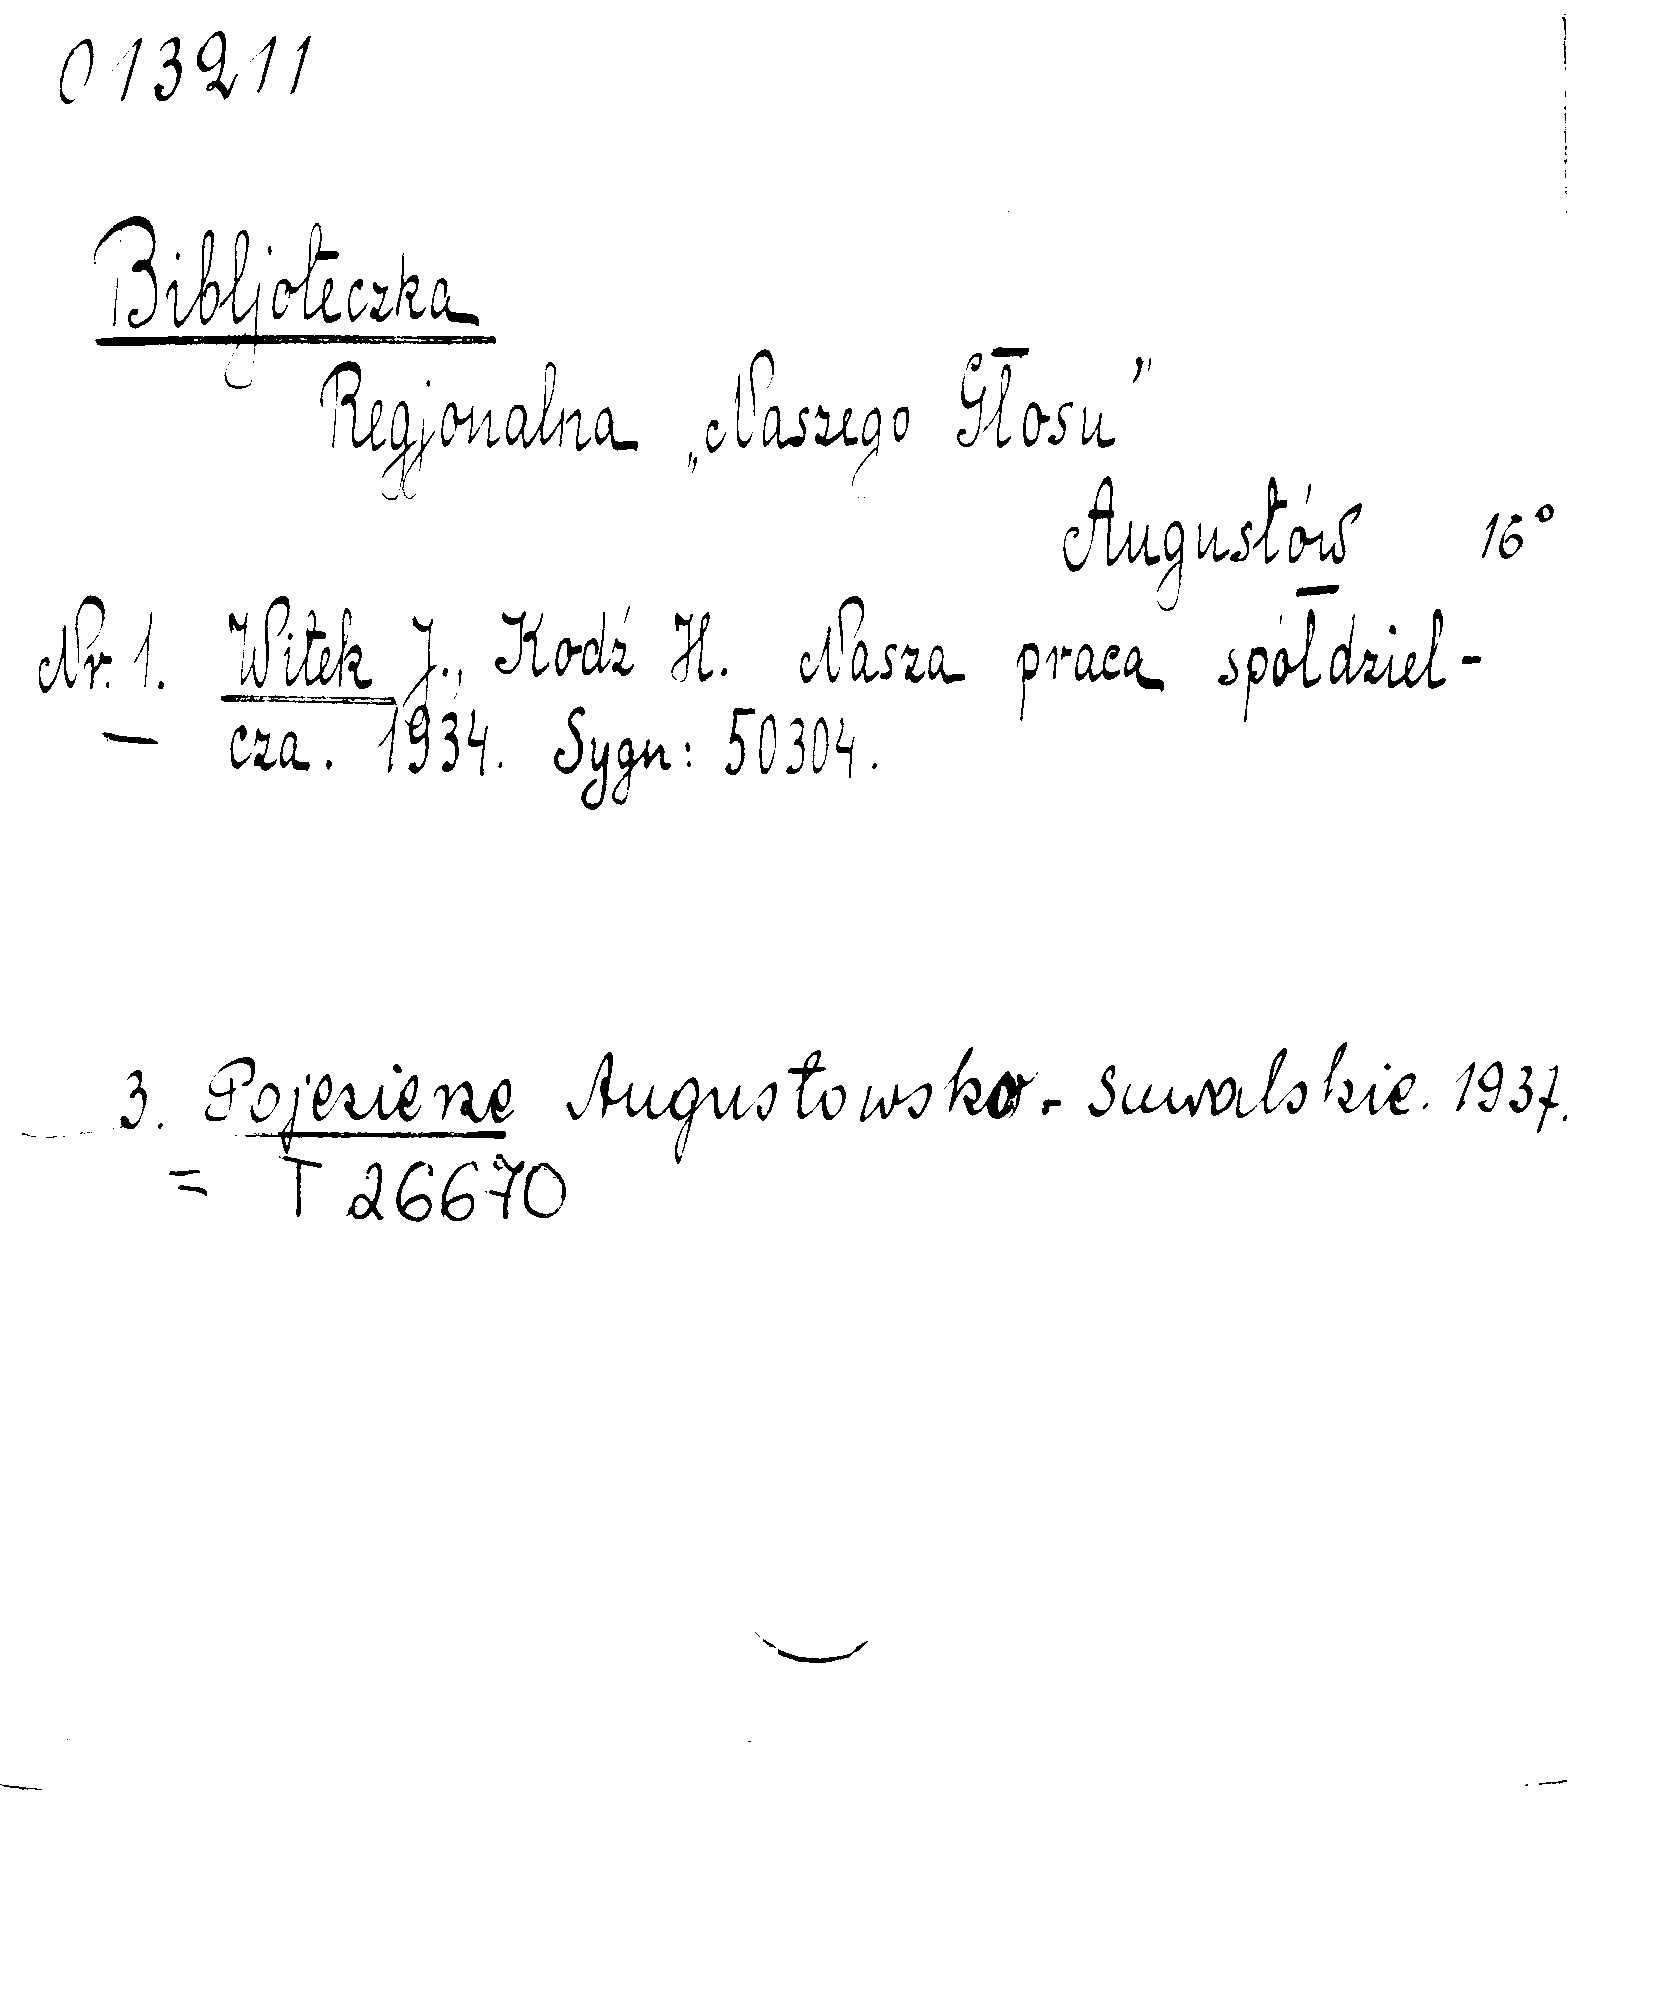 013211
Bibljoteczka
Regjonalna „Naszego Głosu”
Augustów 16°
Nr. 1. Witek J., Kodź H. Nasza praca spółdziel-
cza. 1934. Sygn: 50304.
3. Pojezierze Augustowsko-Suwalskie. 1937.
= T 26670